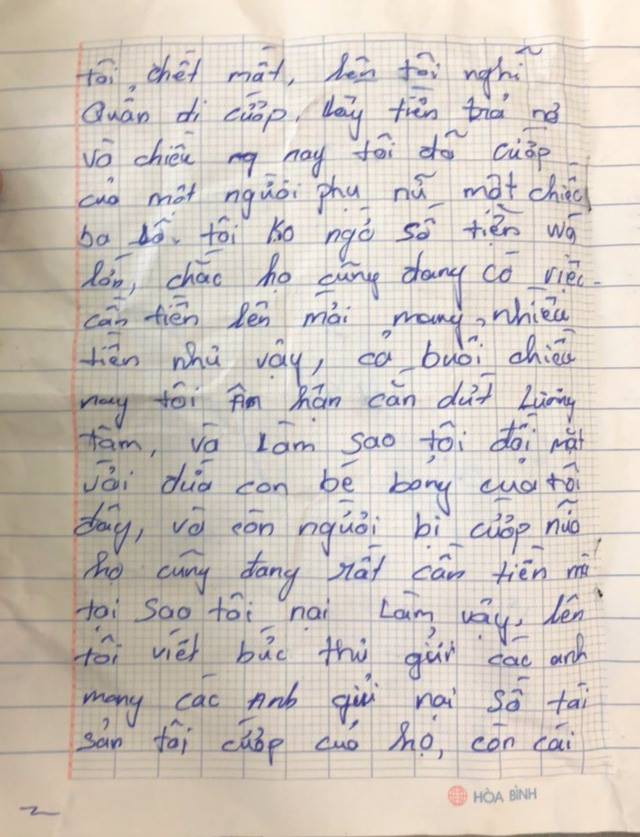 tôi, chết mất, lên tôi nghĩ
Quẩn đi cướp, lấy tiền trả nợ
và chiều nay tôi đã cướp
của một người phụ nữ một chiếc
ba lô. tôi ko ngờ số tiền wá
lớn, chắc họ cũng đang có việc
cần tiền lên mới mang, nhiều
tiền như vậy, cả buổi chiều
nay tôi ân hận cắn dứt Lương
tâm, và Làm sao tôi đối mặt
với đứa con bé bỏng của tôi
đây, và còn người bị cướp nữa
họ cũng đang rất cần tiền mà
tại sao tôi nại Làm vậy, lên
tôi viết bức thư gửi các anh
mong các Anh gửi nại số tài
sản tôi cướp của họ, còn cái
HÒA BÌNH